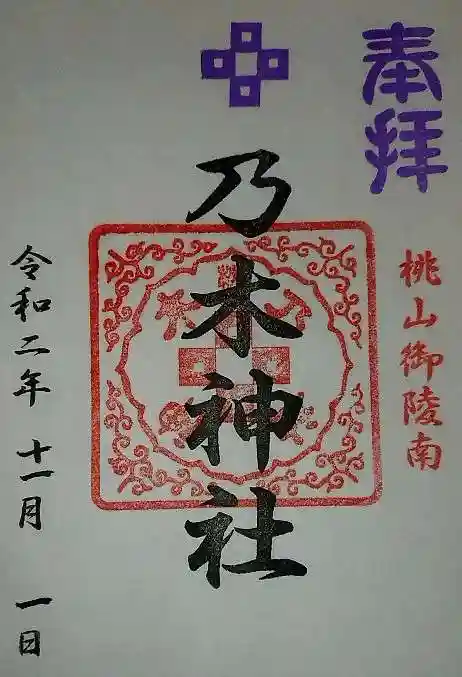 奉拝
桃山御陵南
乃木神社
令和二年 十一月 一日